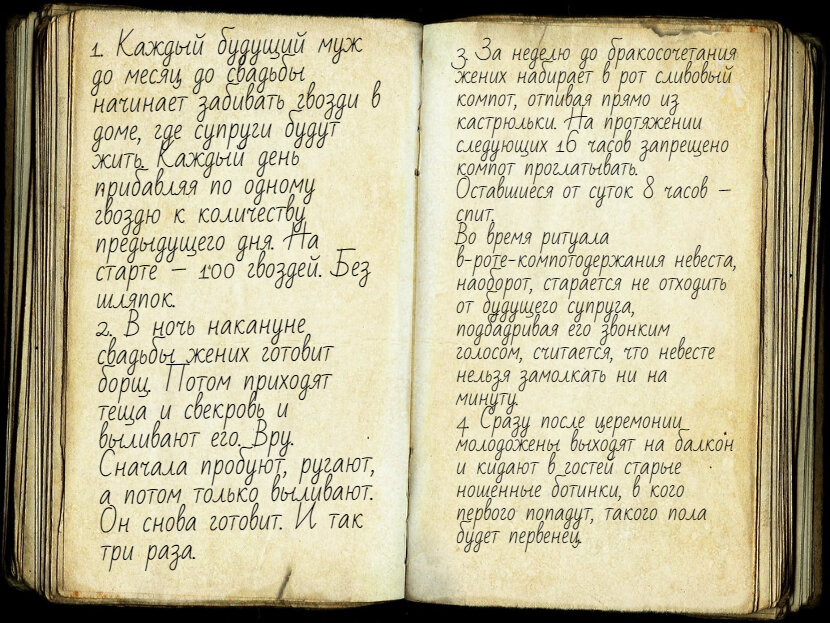 1. Каждый будущий муж
до месяц до свадьбы
начинает забивать гвозди в
доме, где супруги будут
жить. Каждый день
прибавляя по одному
гвоздю к количеству
предыдущего дня. На
старте — 100 гвоздей. Без
шляпок.
2. В ночь накануне
свадьбы жених готовит
борщ. Потом приходят
теща и свекровь и
выливают его. Вру.
Сначала пробуют, ругают,
а потом только выливают.
Он снова готовит. И так
три раза.
3. За неделю до бракосочетания
жених набирает в рот сливовый
компот, отпивая прямо из
кастрюльки. На протяжении
следующих 16 часов запрещено
компот проглатывать.
Оставшиеся от суток 8 часов —
спит.
Во время ритуала
в-роте-компотодержания невеста,
наоборот, старается не отходить
от будущего супруга,
подбадривая его звонким
голосом, считается, что невесте
нельзя замолкать ни на
минуту.
4. Сразу после церемонии
молодожены выходят на балкон
и кидают в гостей старые
ношенные ботинки, в кого
первого попадут, такого пола
будет первенец.